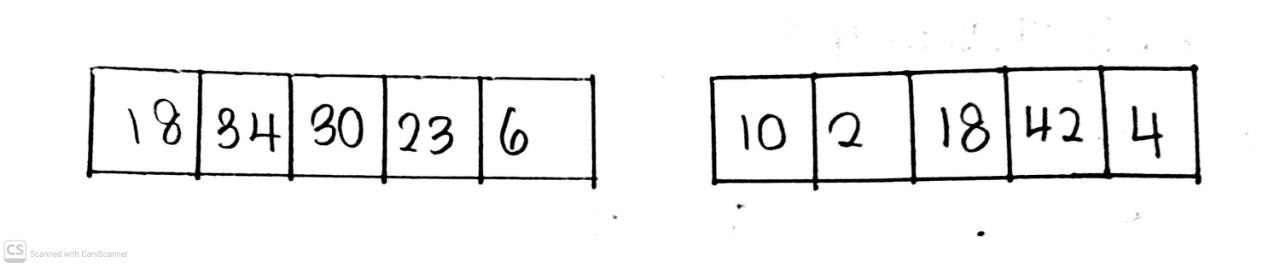 18 34 30 23 6 10 2 18 42 4
CS Scanned with CamScanner